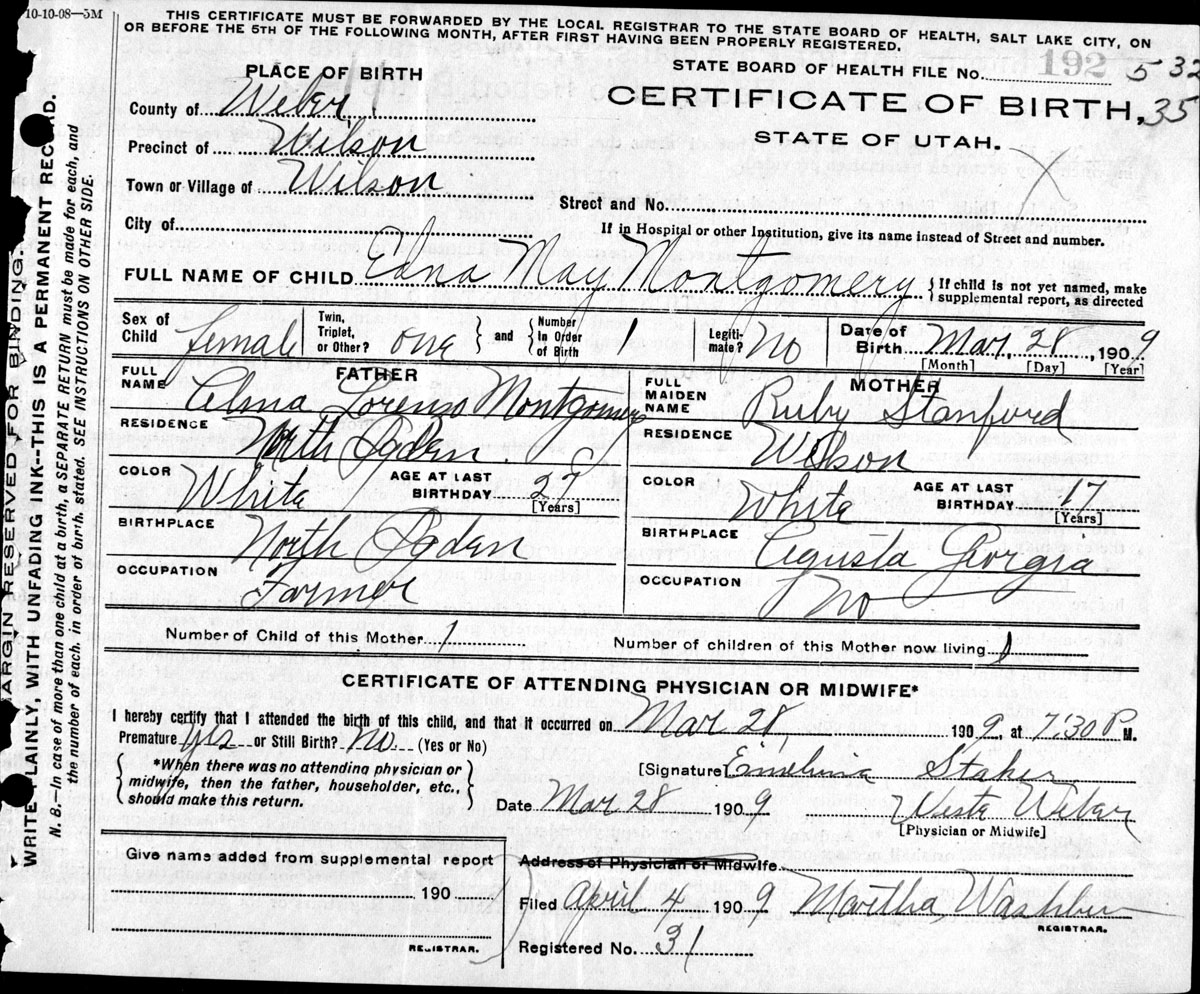 10-10-08—5M
THIS CERTIFICATE MUST BE FORWARDED BY THE LOCAL REGISTRAR TO THE STATE BOARD OF HEALTH, SALT LAKE CITY, ON
OR BEFORE THE 5TH OF THE FOLLOWING MONTH, AFTER FIRST HAVING BEEN PROPERLY REGISTERED.
PLACE OF BIRTH
STATE BOARD OF HEALTH FILE No. 192 5 32
County of Weber
CERTIFICATE OF BIRTH, 35
Precinct of Wilson
STATE OF UTAH.
Town or Village of Wilson
Street and No.
City of
If in Hospital or other Institution, give its name instead of Street and number.
FULL NAME OF CHILD Edna May Montgomery { If child is not yet named, make supplemental report, as directed
Sex of Child female Twin, Triplet, or Other? one } and { Number in Order of Birth 1 Legiti-mate? No Date of Birth Mar. 28, 190 9
[Month] [Day] [Year]
FATHER
FULL NAME Alma Lorenso Montgomery
RESIDENCE North Ogden
COLOR White AGE AT LAST BIRTHDAY 27 [Years]
BIRTHPLACE North Ogden
OCCUPATION Farmer
MOTHER
FULL MAIDEN NAME Ruby Stanford
RESIDENCE Wilson
COLOR White AGE AT LAST BIRTHDAY 17 [Years]
BIRTHPLACE Agusta Georgia
OCCUPATION No
Number of Child of this Mother 1 Number of children of this Mother now living 1
CERTIFICATE OF ATTENDING PHYSICIAN OR MIDWIFE*
I hereby certify that I attended the birth of this child, and that it occurred on Mar 28, 190 9, at 7:30 P M.
Premature yes or Still Birth? No (Yes or No)
{ *When there was no attending physician or midwife, then the father, householder, etc., should make this return. }
[Signature] Staker
Date Mar 28 190 9 Weber
[Physician or Midwife]
Give name added from supplemental report
190
REGISTRAR.
Address of Physician or Midwife
Filed April 4 190 9 Martha Washburn
REGISTRAR.
Registered No. 31
MARGIN RESERVED FOR BINDING.
WRITE PLAINLY, WITH UNFADING INK--THIS IS A PERMANENT RECORD.
N. B.—In case of more than one child at a birth, a SEPARATE RETURN must be made for each, and
the number of each, in order of birth, stated. SEE INSTRUCTIONS ON OTHER SIDE.